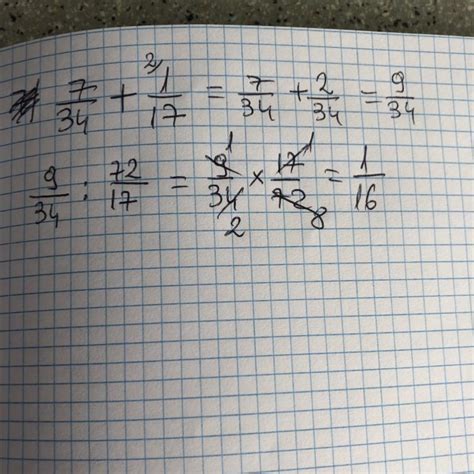 7/34 + 2) 1/17 = 7/34 + 2/34 = 9/34
9/34 : 72/17 = 9 1/34 2 × 17 1/72 8 = 1/16